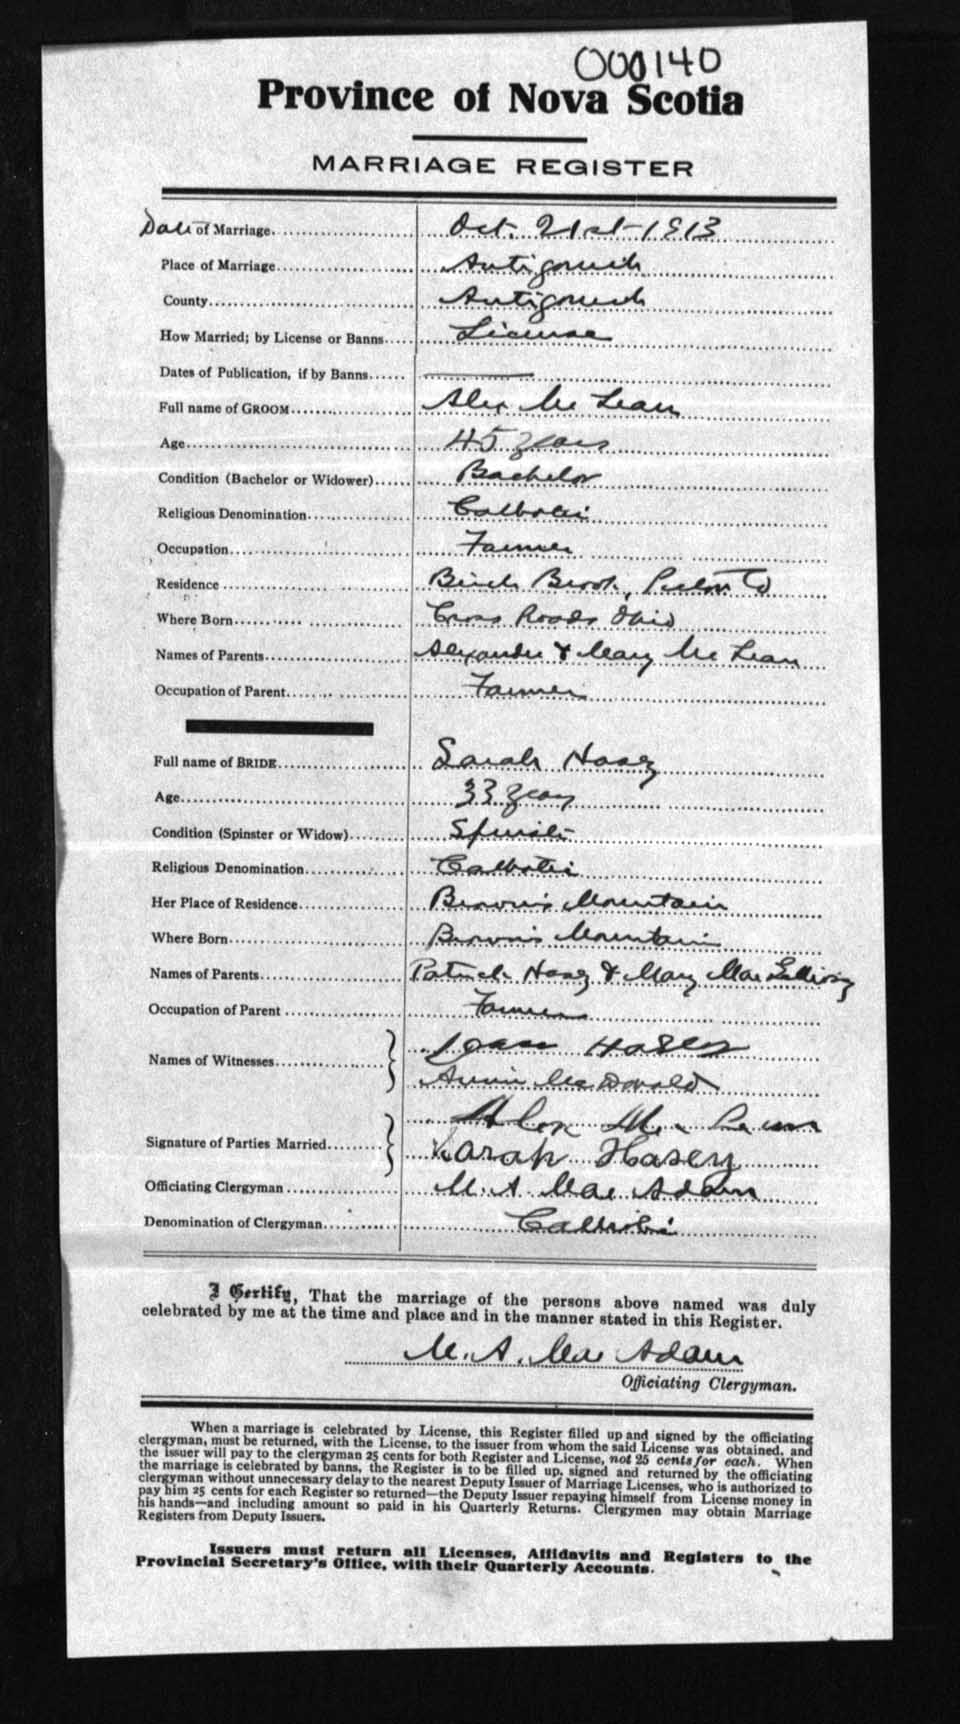 000140
Province of Nova Scotia
MARRIAGE REGISTER
Date of Marriage Oct. 21st 1913
Place of Marriage Antigonish
County Antigonish
How Married; by License or Banns License
Dates of Publication, if by Banns
Full name of GROOM Alex Mc Lean
Age 45 years
Condition (Bachelor or Widower) Bachelor
Religious Denomination Catholic
Occupation Farmer
Residence Birch Brook, Pictou Co
Where Born Cross Roads Ohio
Names of Parents Alexander & Mary Mc Lean
Occupation of Parent Farmer
Full name of BRIDE Sarah Hasey
Age 33 years
Condition (Spinster or Widow) Spinster
Religious Denomination Catholic
Her Place of Residence Brown's Mountain
Where Born Brown's Mountain
Names of Parents Patrick Hasey & Mary Mac Gillivray
Occupation of Parent Farmer
Names of Witnesses Hasey
Annie MacDonald
Signature of Parties Married Alex Mc Lean
Sarah Hasey
Officiating Clergyman M. A. Mac Adam
Denomination of Clergyman Catholic
I Certify, That the marriage of the persons above named was duly
celebrated by me at the time and place and in the manner stated in this Register.
M. A. Mac Adam
Officiating Clergyman.
When a marriage is celebrated by License, this Register filled up and signed by the officiating
clergyman, must be returned, with the License, to the issuer from whom the said License was obtained, and
the issuer will pay to the clergyman 25 cents for both Register and License, not 25 cents for each. When
the marriage is celebrated by banns, the Register is to be filled up, signed and returned by the officiating
clergyman without unnecessary delay to the nearest Deputy Issuer of Marriage Licenses, who is authorized to
pay him 25 cents for each Register so returned—the Deputy Issuer repaying himself from License money in
his hands—and including amount so paid in his Quarterly Returns. Clergymen may obtain Marriage
Registers from Deputy Issuers.
Issuers must return all Licenses, Affidavits and Registers to the
Provincial Secretary's Office, with their Quarterly Accounts.